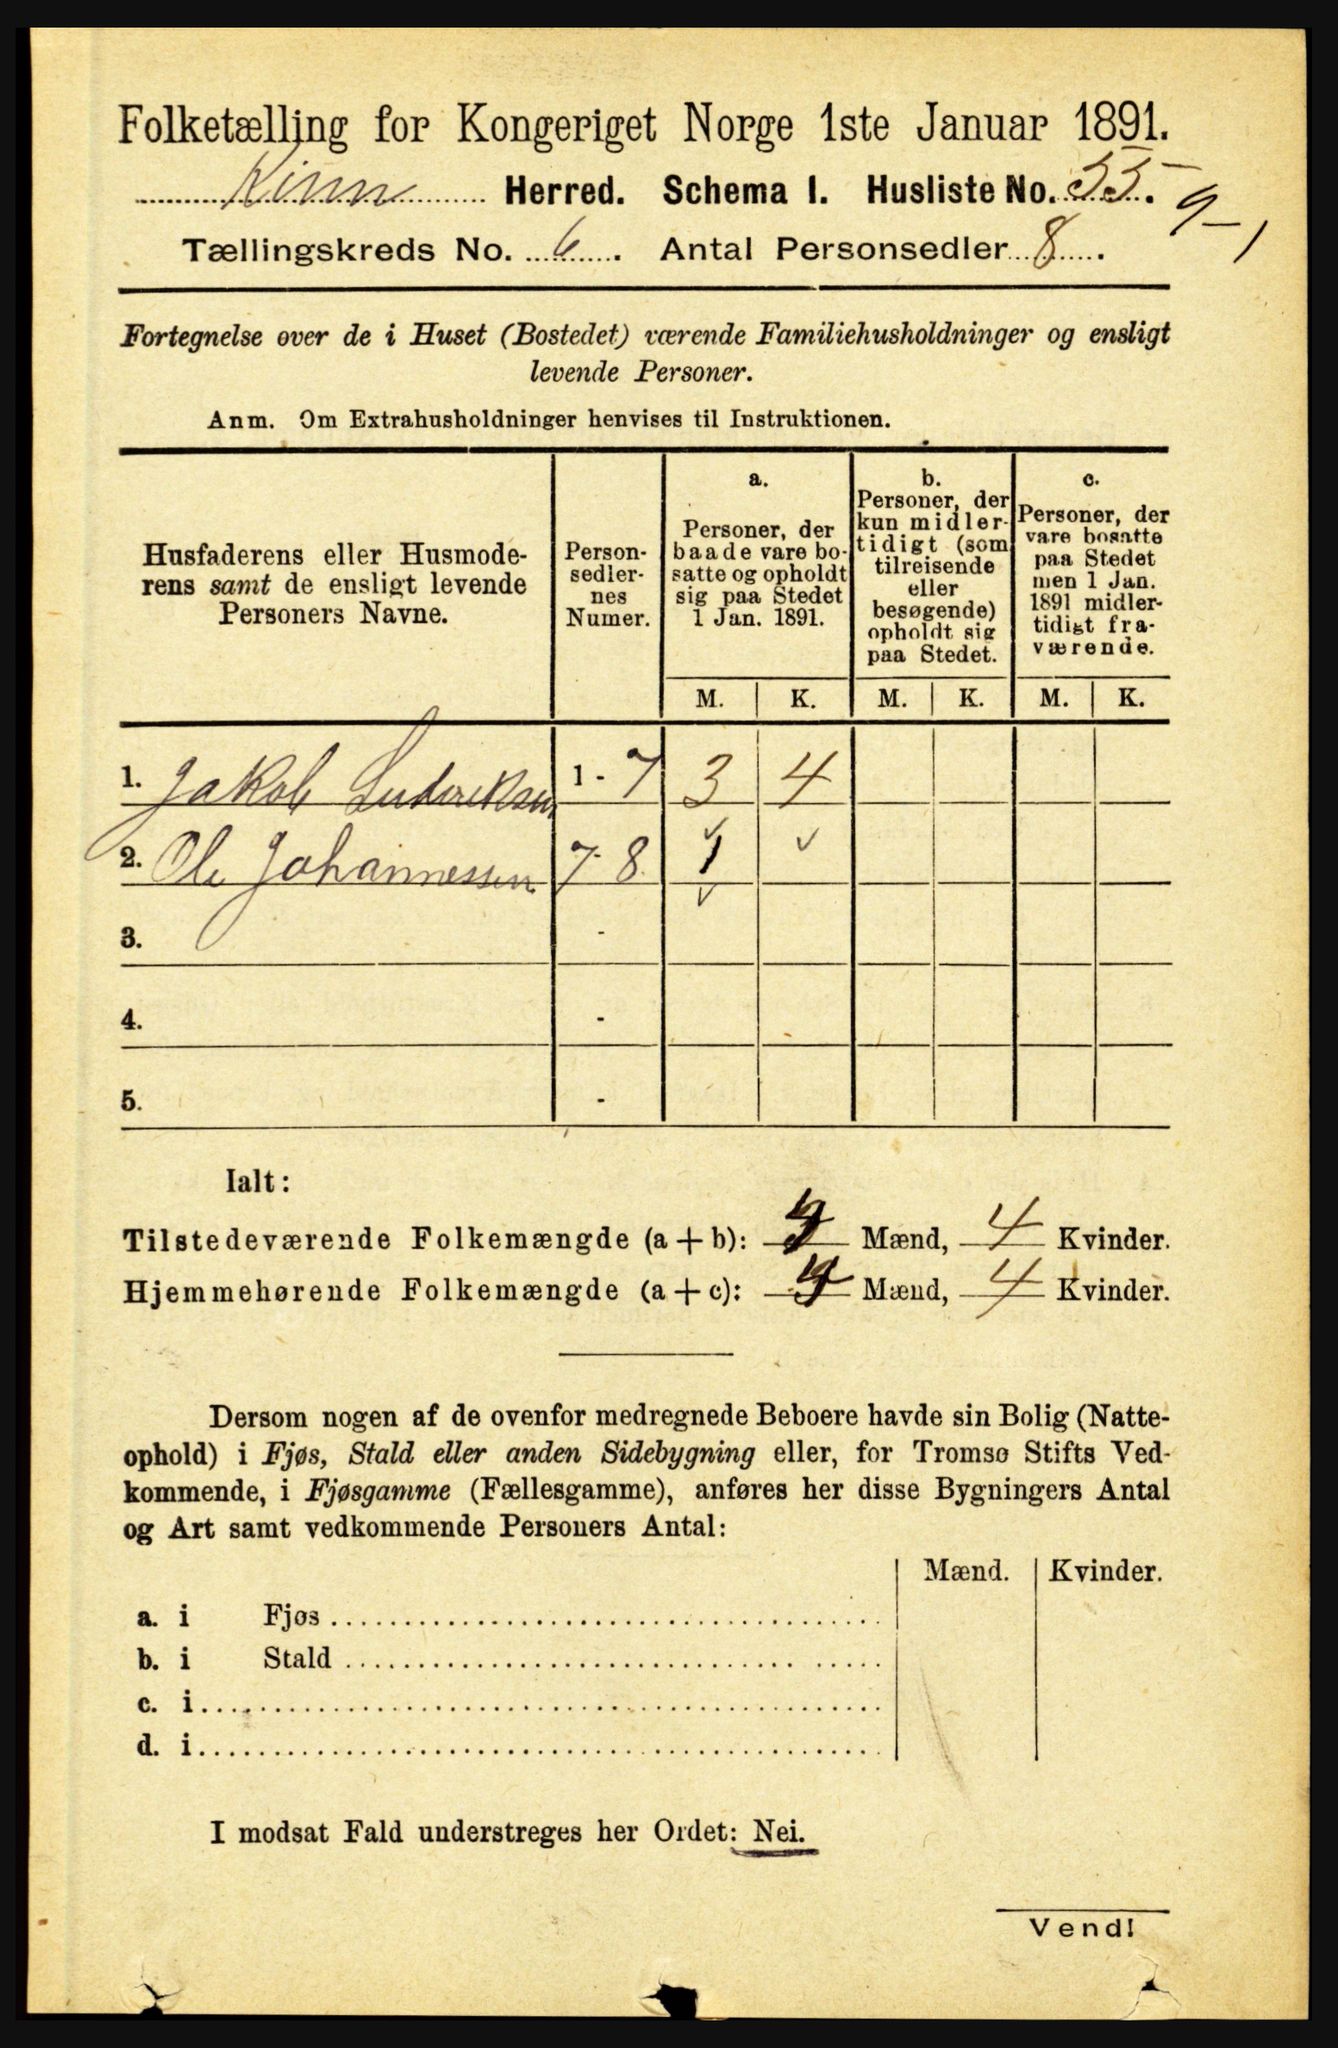 Folketælling for Kongeriget Norge 1ste Januar 1891.
Kinn Herred. Schema I. Husliste No. 55.
9-1
Tællingskreds No. 6. Antal Personsedler 8.
Fortegnelse over de i Huset (Bostedet) værende Familiehusholdninger og ensligt
levende Personer.
Anm. Om Extrahusholdninger henvises til Instruktionen.
Husfaderens eller Husmode-
rens samt de ensligt levende
Personers Navne.
Person-
sedler-
nes
Numer.
a.
Personer, der
baade vare bo-
satte og opholdt
sig paa Stedet
1 Jan. 1891.
b.
Personer, der
kun midler-
tidigt (som
tilreisende
eller
besøgende)
opholdt sig
paa Stedet.
c.
Personer, der
vare bosatte
paa Stedet
men 1 Jan.
1891 midler-
tidigt fra-
værende.
M. K. M. K. M. K.
1. Jakob Luderiksen 1 - 7 3 4
2. Ole Johannessen 7-8 1
3. -
4. -
5. -
Ialt:
Tilstedeværende Folkemængde (a + b): 4 Mænd, 4 Kvinder.
Hjemmehørende Folkemængde (a + c): 4 Mænd, 4 Kvinder.
Dersom nogen af de ovenfor medregnede Beboere havde sin Bolig (Natte-
ophold) i Fjøs, Stald eller anden Sidebygning eller, for Tromsø Stifts Ved-
kommende, i Fjøsgamme (Fællesgamme), anføres her disse Bygningers Antal
og Art samt vedkommende Personers Antal:
Mænd. Kvinder.
a. i Fjøs
b. i Stald
c. i
d. i
I modsat Fald understreges her Ordet: Nei.
Vend!